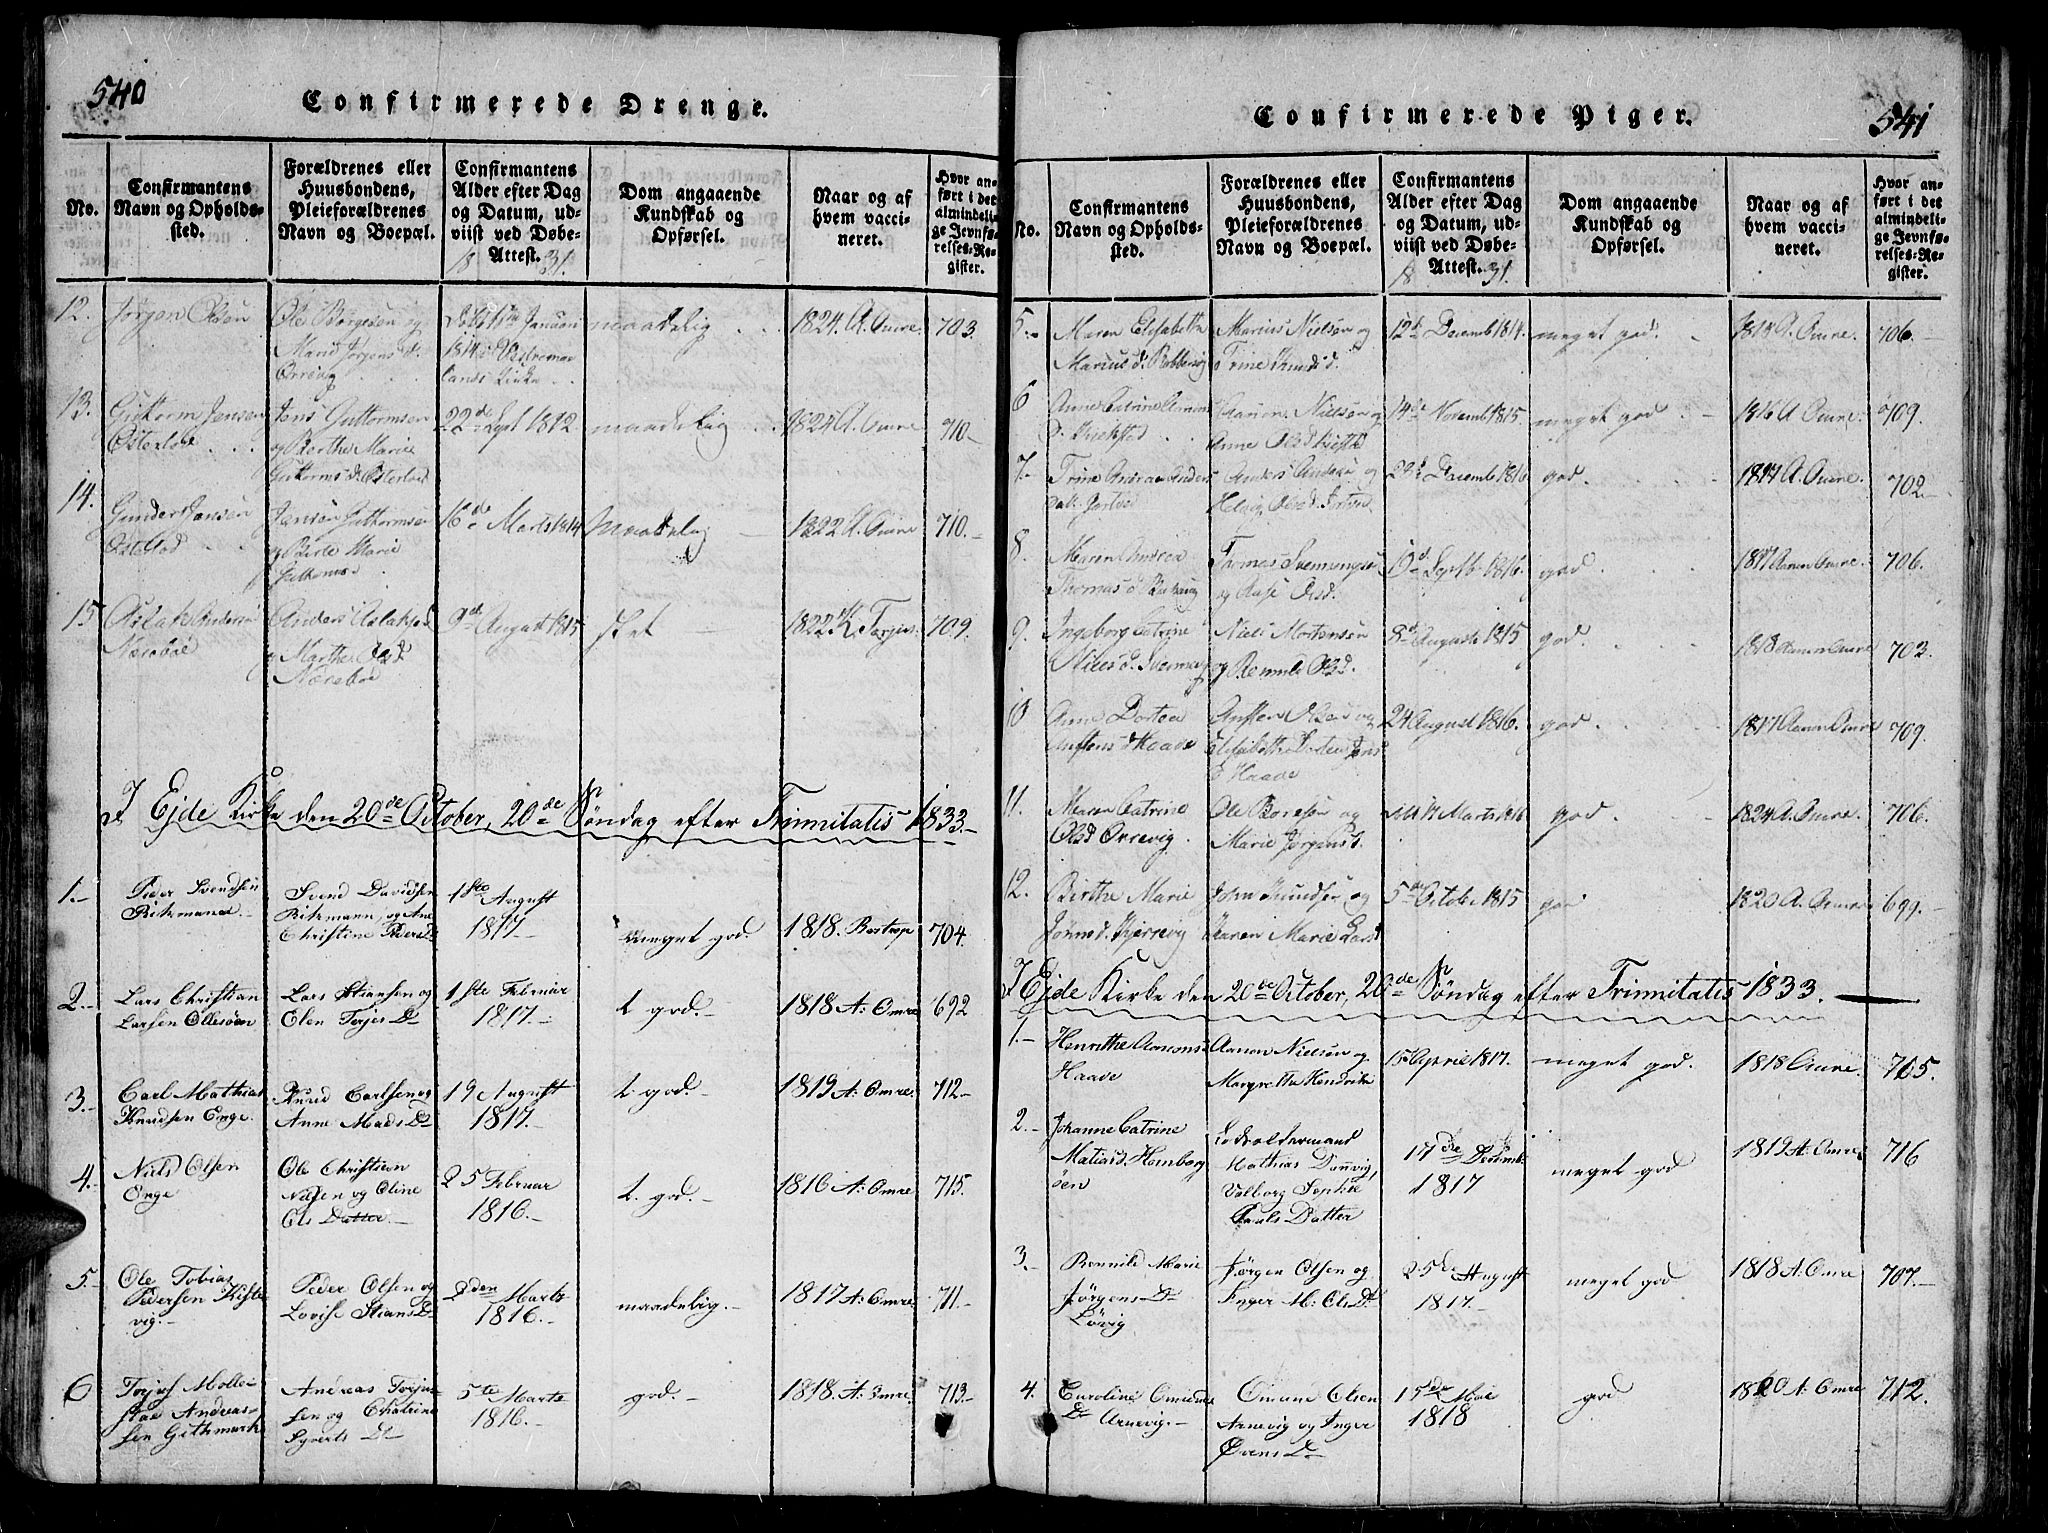 540
Confirmerede Drenge.
No.
Confirmantens
Navn og Opholds-
sted.
Forældrenes eller
Huusbondens,
Pleieforældrenes
Navn og Boepæl.
Confirmantens
Alder efter Dag
og Datum, ud-
viist ved Døbe-
Attest.
18 31.
Dom angaaende
Kundskab og
Opførsel.
Naar og af
hvem vacci-
neret.
Hvor an-
ført i det
almindeli-
ge Jevnfø-
relses-Re-
gister.
12. Jørgen Olsen
Ole Børgesen og
Marie Jørgens d.
Orrevig
Januari
1814 i Vestremoe
lands Kirke
maadelig
1824. A. Omre.
703.
13. Guttorm Jensen
Østerloe
Jens Guttormsen
og Berthe Marie
Guttorms d. Østerloe
22de Sept 1812.
maadelig
1824 A. Omre
710-
14. Gunder Jensen
Jensen Guttormsen
og Berte Marie
Guttormsd
16de Marts 1814
maadelig
1822 A. Omre
710.-
15 Aslak Anders
Nærebøe
Anders Aslaksen
og Marthe d
Nærebøe
9de August 1815
slet
1822 K. Torjus.
709.
I Ejde Kirke den 20de October, 20de Søndag efter Trinnitatis 1833.-
1.- Peder Svendsen
Birkmand.
Svend Davidsen
Birkmann, og Ane
Christine Peders D
1ste August
1817.-
meget god.
1818. Bastrop
704.
2.- Lars Christian
Larsen Ollesøen
Lars Stiansen og
Elen Torjes D
1ste Februar
1817.-
t. god.-
1818 A: Omre
692
3.- Carl Mathias
Knudsen Enge.
Knud Carlsen og
Anne Mads D
19 August
1817.-
t. god.-
1819 A: Omre.
712.-
4.- Niels Olsen
Enge
Ole Christian
Nielsen og Oline
Ols Datter.-
25 Februar
1816.-
t. god.-
1816 A: Omre
715.
5.- Ole Tobias
Pedersen Kiste
vig.-
Peder Olsen og
Lovise Stians D
2den Marts
1816.-
maadelig.-
1817 A: Omre.
711.-
6 Torjus Molle
stae Andreas-
sen Githmark
Andreas Torjus-
sen og Chatrine
Syverts D
5te Marts
1816.-
god.-
1818. A: Omre.
713.-
541
Confirmerede Piger.
No.
Confirmantens
Navn og Opholds-
sted.
Forældrenes eller
Huusbondens,
Pleieforældrenes
Navn og Boepæl.
Confirmantens
Alder efter Dag
og Datum, ud-
viist ved Døbe-
Attest.
18 31.
Dom angaaende
Kundskab og
Opførsel.
Naar og af
hvem vacci-
neret.
Hvor an-
ført i det
almindeli-
ge Jevnfø-
relses-Re-
gister.
5.- Maren Elisabeth
Marius d.
Marius Nielsen og
Trine Knuds d.
12te Decemb 1814.
meget god.
1814 A. Omre.
706.-
6 Anne Catrine
Nielsen og
Anne Olsd
14de Novemb 1815
meget god
1816 A. Omre.
709.
7.- Trine Andrea Anders
Anders Andersen og
Helvig Olsd.
22de Decemb 1816
god.
1817 A. Omre.
702.-
8. Maren Andrea
Thomas d
Tomes Svennungsen
og Aase Olsd.
Septb 1816.
god.
1817 Aanon Omre.
706.
9. Ingeborg Catrine
Niels d.
Niels Mortensen
og Ronnele Olsd.
8de August 1815
god
1818 Aanon Omre
703.
10 Anne Dortea
Austens d Haave
Austen Olsen og
Elisabeth Jens
D Haave
24 August 1816.
god.
1817 Aanon Omre
709.
11. Maren Catrine
Olsd Orrevig.
Ole Boresen og
Marie Jørgens d.
17 Marts 1816
god.
1824 A. Omre.
706.
12. Birthe Marie
John Knudsen og
Karen Marie Lars
5de October 1815
god
1820 A. Omre
699.-
I Ejde Kirke den 20de October, 20de Søndag efter Trinnitatis 1833.-
1.- Henrithe Aanons
Haave
Aanon Nielsen og
Margrethe Hendriks
15 April 1817.
meget god.
1818 Omre.
705.
2.- Johanne Catrine
Matiasd. Homborg
øen
Lodsoldermand
Mathias Dannvig,
Valborg Sophie
Pauls Datter
17de Decemb
1817
meget god
1819 A: Omre.
716
3.- Ronnild Marie
Jørgens D
Løvig
Jørgen Olsen og
Inger M: Ols D
25de August
1817.-
meget god
1818 A: Omre
707.-
4. Caroline Omunds
D Arnevig.-
Omund Olsen
Arnevig og Inger
Ovens D
15de Mai
1818
god
1820 A: Omre
712.